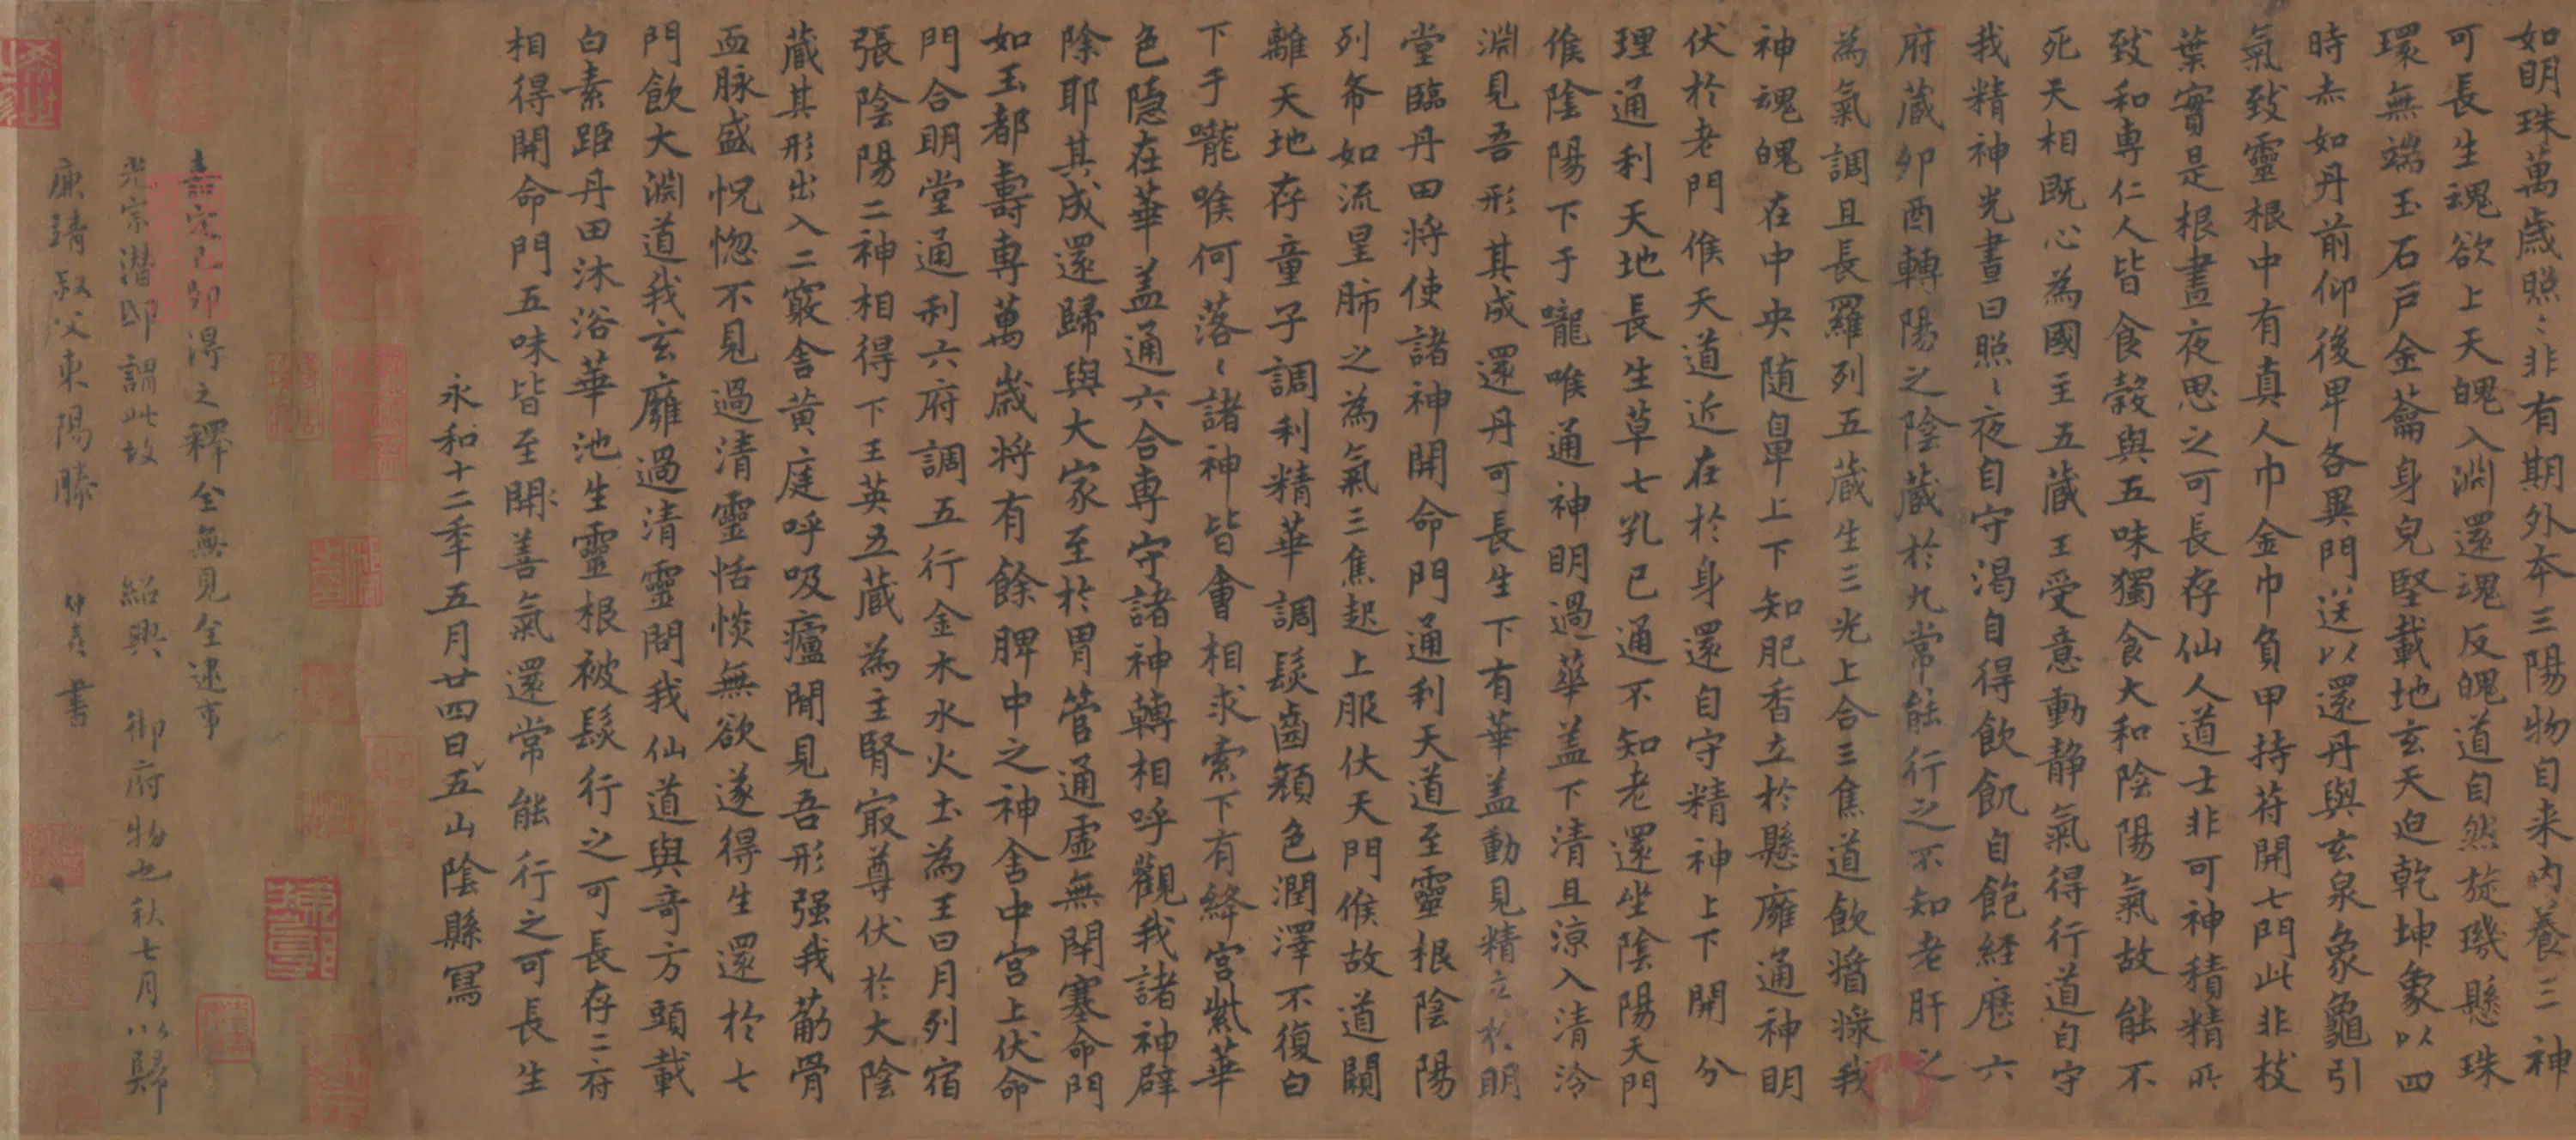 如明珠萬歲照〻非有期外本三陽物自来内養三神
可長生魂欲上天魄入淵還魂反魄道自然旋璣懸珠
環無端玉石戶金蘥身皃堅載地玄天迫乾坤象以四
時赤如丹前仰後卑各異門送以還丹與玄泉象龜引
氣致靈根中有真人巾金巾負甲持苻開七門此非枝
葉實是根晝夜思之可長存仙人道士非可神積精所
致和専仁人皆食穀與五味獨食大和陰陽氣故能不
死天相既心為國主五藏王受意動静氣得行道自守
我精神光晝日照〻夜自守渴自得飲飢自飽経歷六
府藏夘酉轉陽之陰藏於九常能行之不知老肝之
為氣調且長羅列五藏生三光上合三焦道飲醬漿我
神魂魄在中央随鼻上下知肥香立於懸廱通神明
伏於老門候天道近在於身還自守精神上下開分
理通利天地長生草七孔已通不知老還坐陰陽天門
候陰陽下于嚨喉通神明過華盖下清且涼入清泠
淵見吾形其成還丹可長生下有華盖動見精立於明
堂臨丹田将使諸神開命門通利天道至靈根陰陽
列布如流星肺之為氣三焦起上服伏天門候故道闚
離天地存童子調利精華調髮齒顏色潤澤不復白
下于嚨喉何落〻諸神皆會相求索下有絳宮紫華
色隱在華盖通六合専守諸神轉相呼觀我諸神辟
除耶其成還歸與大家至於胃管通虛無閉塞命門
如玉都壽専萬歲将有餘脾中之神舍中宮上伏命
門合明堂通利六府調五行金木水火土為王日月列宿
張陰陽二神相得下玉英五藏為主腎㝡尊伏於大陰
藏其形出入二竅舍黄庭呼吸廬間見吾形强我筋骨
血脉盛怳惚不見過清靈恬惔無欲遂得生還於七
門飲大淵道我玄廱過清靈問我仙道與奇方頭載
白素距丹田沐浴華池生靈根被髮行之可長存二府
相得開命門五味皆至開〻善氣還常能行之可長生
永和十二年五月廿四日五山陰縣寫
宗已即得之釋全無見全逮事
光宗潛邸謂此故紹興御府物也秋七月以歸
康靖叔父東陽滕仲書